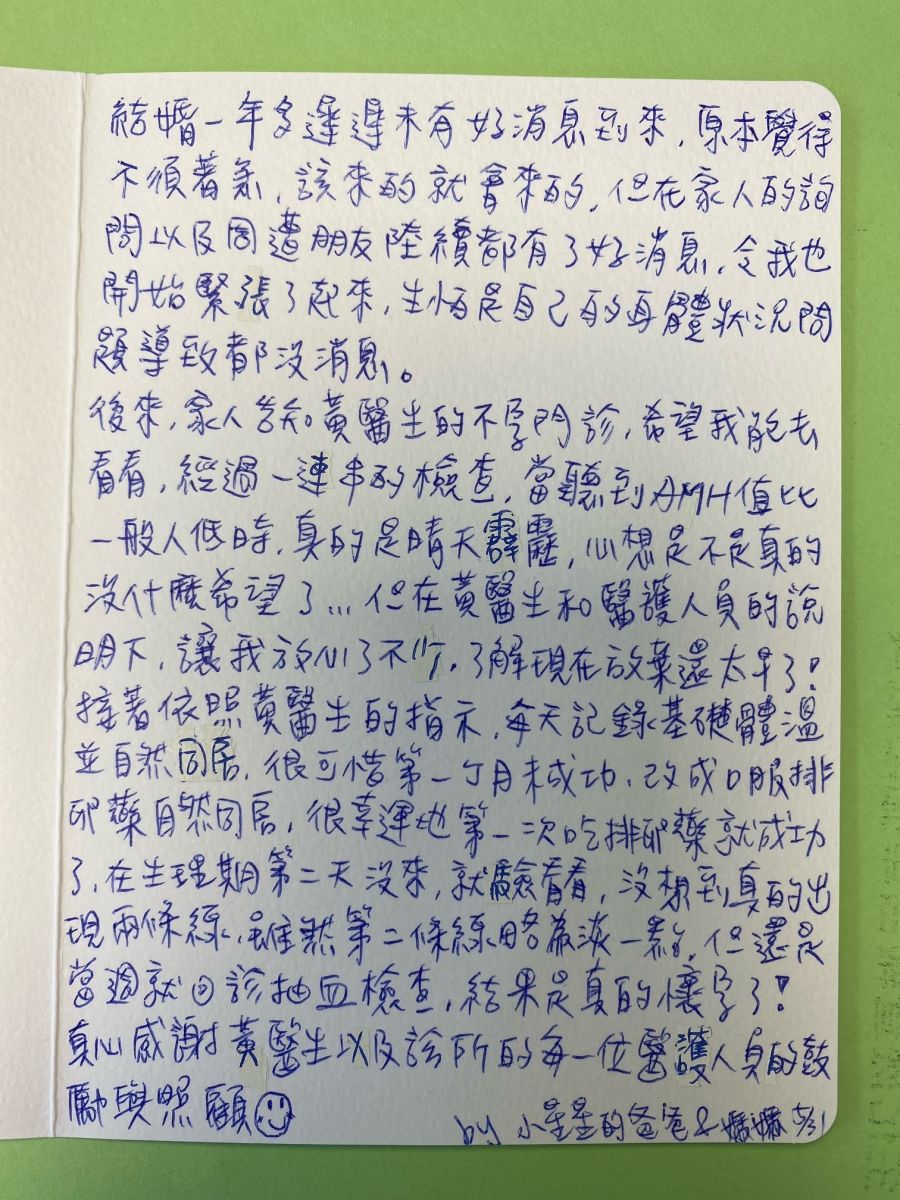 結婚一年多遲遲未有好消息到來，原本覺得
不須著急，該來的就會來的，但在家人的詢
問以及周遭朋友陸續都有了好消息，令我也
開始緊張了起來，生怕是自己的身體狀況問
題導致都沒消息。
後來，家人告知黃醫生的不孕門診，希望我能去
看看，經過一連串的檢查，當聽到AMH值比
一般人低時，真的是晴天霹靂，心想是不是真的
沒什麼希望了...但在黃醫生和醫護人員的說
明下，讓我放心了不少，了解現在放棄還太早了！
接著依照黃醫生的指示，每天記錄基礎體溫
並自然同房，很可惜第一个月未成功，改成口服排
卵藥自然同房，很幸運地第一次吃排卵藥就成功
了，在生理期第二天沒來，就驗看看，沒想到真的出
現兩條線，雖然第二條線略為淡一點，但還是
當週就回診抽血檢查，結果是真的懷孕了！
真心感謝黃醫生以及診所的每一位醫護人員的鼓
勵與照顧
by 小星星的爸爸&媽媽 5/31